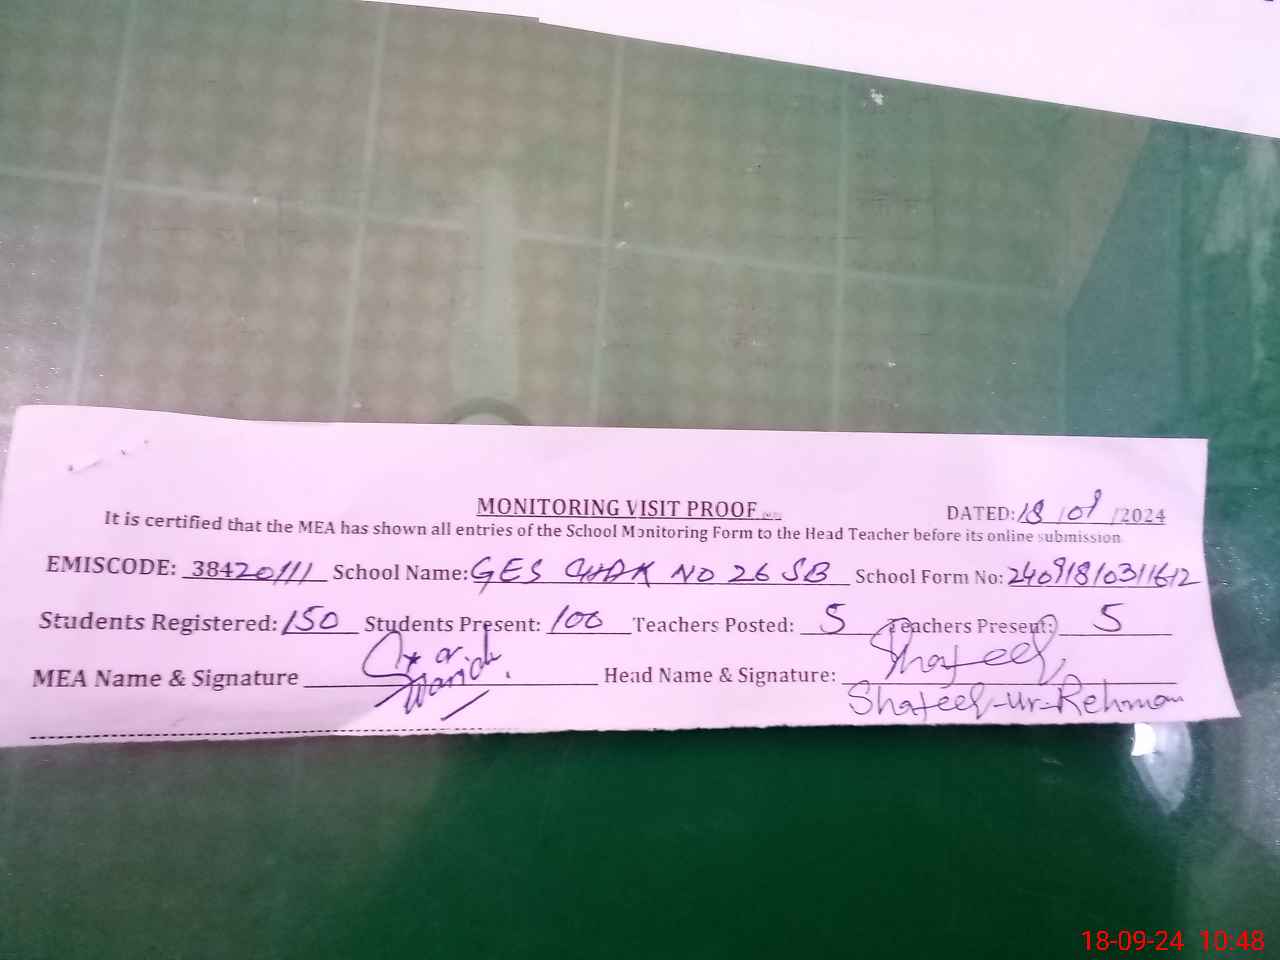 MONITORING VISIT PROOF
DATED: 18/09/2024
It is certified that the MEA has shown all entries of the School Monitoring Form to the Head Teacher before its online submission
EMISCODE: 38420111 School Name: GES CHAK NO 26 SB School Form No: 24091810311612
Students Registered: 150 Students Present: 100 Teachers Posted: 5 Teachers Present: 5
MEA Name & Signature Head Name & Signature: Shafeeq
Shafeeq-ur-Rehman
18-09-24 10:48